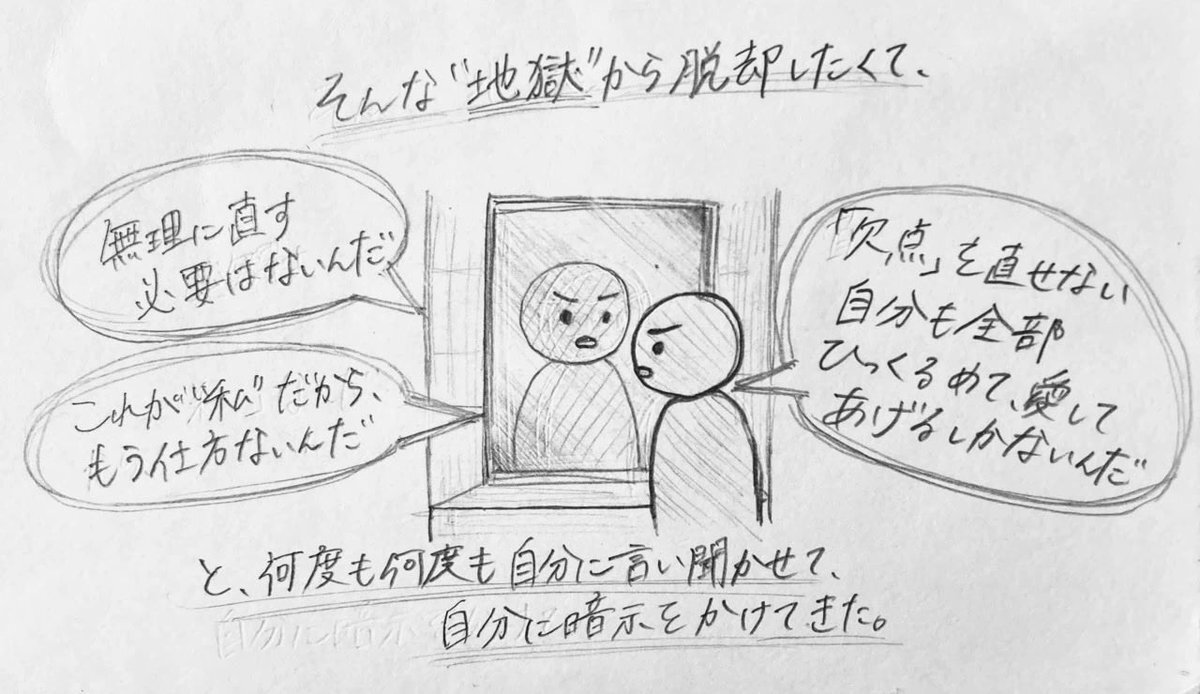 そんな“地獄”から脱却したくて、
無理に直す
必要はないんだ
これが“私”だから、
もう仕方ないんだ
「欠点」を直せない
自分も全部
ひっくるめて、愛して
あげるしかないんだ
と、何度も何度も自分に言い聞かせて、
自分に暗示をかけてきた。